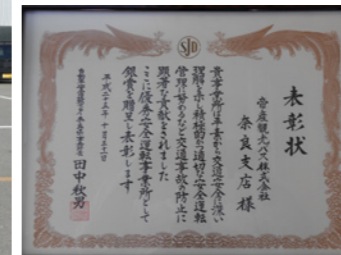 SJD
表彰状
帝産観光バス株式会社
奈良支店 様
貴事業所は平素から交通安全に深い
理解を示し積極的に適切な安全運転
管理に努めるなど交通事故の防止に
顕著な貢献をされました
ここに優秀安全運転事業所として
銀賞を贈呈し表彰します
平成二十五年
田中秋男